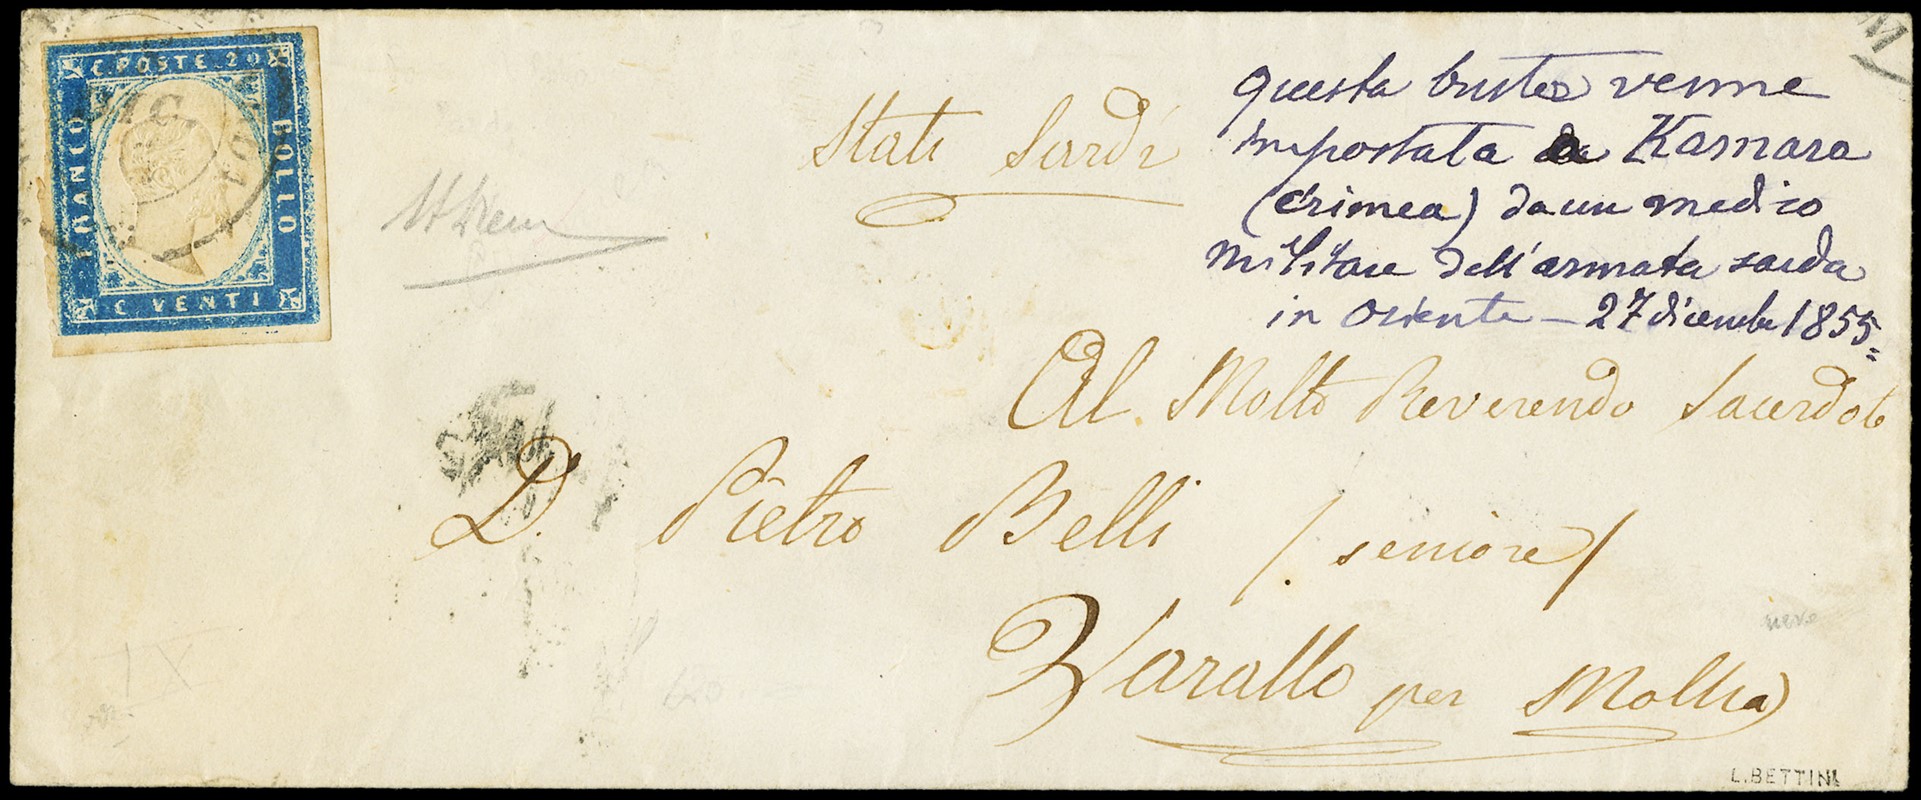 C. POSTE. 20
FRANCO
BOLLO
C. VENTI
Stati Sardi
questa busta venne
impostata da Kamara
(Crimea) da un medico
militare dell'armata sarda
in oriente – 27 dicembre 1855=
Al Molto Reverendo Sacerdote
D. Pietro Belli /seniore/
Varallo per Mollia
L. BETTINI